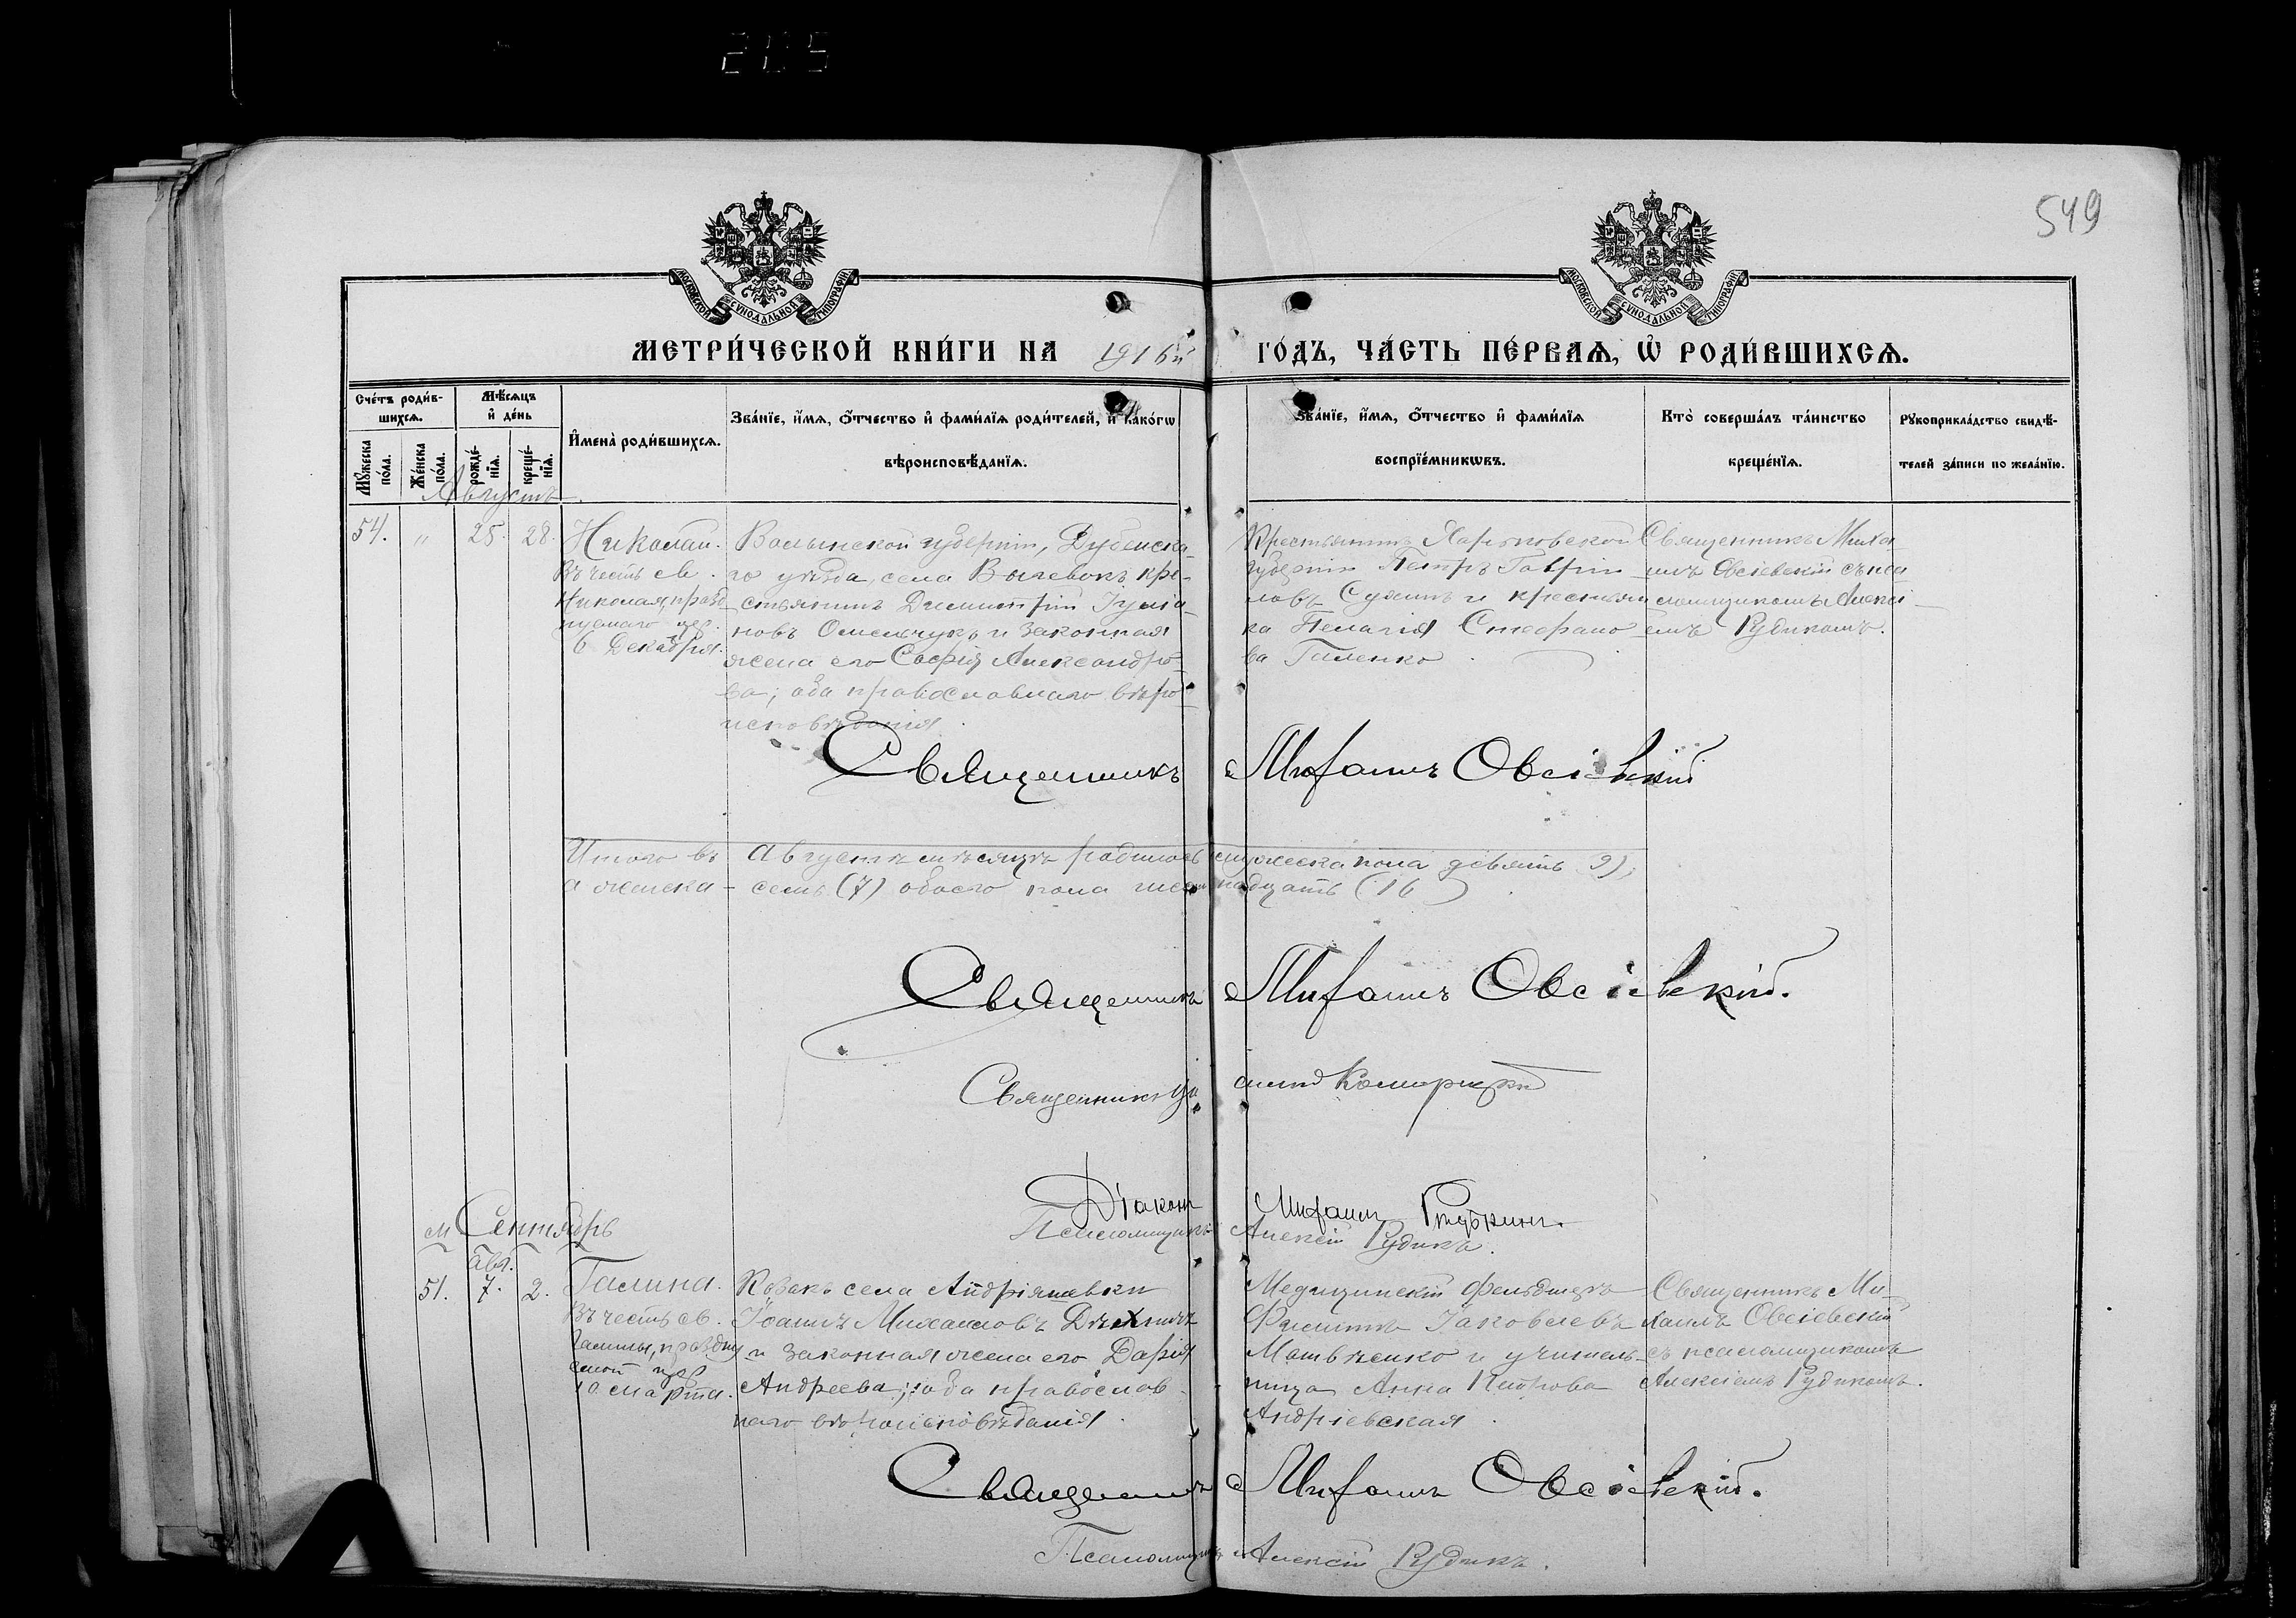 205
549
МОСКОВСКОЙ СУНОДАЛЬНОЙ ТИПОГРАФІИ
МОСКОВСКОЙ СУНОДАЛЬНОЙ ТИПОГРАФІИ
МЕТРИ́ЧЕСКОЙ КНИ́ГИ НА 1916й ГО́ДЪ, ЧА́СТЬ ПЕ́РВАѦ, Ѡ҆ РОДИ́ВШИХСѦ.
Сче́тъ роди́в-
шихсѧ.
Мꙋ́жеска по́ла.
Же́нска по́ла.
Мѣ́сѧцъ
и҆ де́нь
рожде́-
нїѧ.
креще́-
нїѧ.
И҆мена̀ роди́вшихсѧ.
Зва́нїе, и҆́мѧ, ѻ҆́тчество и҆ фами́лїѧ роди́телей, и҆ како́гѡ
вѣроисповѣ́данїѧ.
Зва́нїе, и҆́мѧ, ѻ҆́тчество и҆ фами́лїѧ
воспрїе́мникѡвъ.
Кто̀ соверша́лъ та́инство
креще́нїѧ.
Рꙋкоприкла́дство свидѣ́-
телей за́писи по жела́нїю.
Августъ.
54. " 25. 28.
Николай.
Въ честь св.
Николая, празд
нуемаго цер.
6 Декабря.
Волынской губерніи, Дубенска-
го уѣзда, села кре-
стьянинъ Димитрій Іулiа
новъ Омельчукъ и законная
жена его Софія Александро-
ва; оба православнаго вѣро-
исповѣданія.
Крестьянинъ Харьковской
губерніи Петръ Гаврiи
ловъ и крестьян
ка Пелагія Стефано
ва Галенко
Священникъ Миха
илъ Овсіевскій съ пса
ломщикомъ Алексі-
емъ Рудикомъ.
Священникъ Михаилъ Овсіевскій
Итого въ Августѣ мѣсяцѣ родилось мужеска пола девять (9);
а женска - семь (7) обоего пола шестнадцать (16)
Священникъ Михаилъ Овсіевскій.
Священникъ
Діаконъ Михаилъ
Псаломщикъ Алексій Рудикъ.
м Сентябрь
Авг.
51. 7. 2.
Галина.
Въ честь св.
Галины, праздну
емой цер
10 марта.
Козакъ села Андріяшевки
Іоаннъ Михаиловъ
и законная жена его Дарія
Андреева; оба православ
наго вѣроисповѣданія.
Медицинскій фельдшеръ
Филиппъ Іаковлевъ
Матвѣенко и учитель-
ница Анна Петрова
Андріевская.
Священникъ Ми-
хаилъ Овсіевскій
съ псаломщикомъ
Алексіемъ Рудикомъ.
Священникъ Михаилъ Овсіевскій.
Псаломщикъ Алексій Рудикъ.